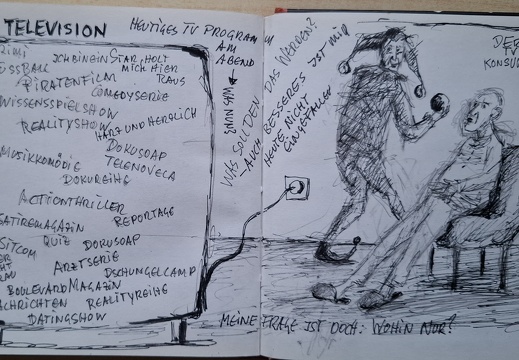 TELEVISION
HEUTIGES TV PROGRAM
AM
ABEND
KRIMI
ICH BIN EIN STAR, HOLT
MICH HIER
RAUS
FUSSBALL
PIRATENFILM
COMEDYSERIE
WISSENSSPIELSHOW
REALITYSHOW
HART UND HERZLICH
DOKUSOAP
MUSIKKOMÖDIE
TELENOVELA
DOKUREIHE
ACTIONTHRILLER
SATIREMAGAZIN
REPORTAGE
SITCOM
QUIZ
DOKUSOAP
ARZTSERIE
DSCHUNGELCAMP
BOULEVARDMAGAZIN
NACHRICHTEN
REALITYREIHE
DATINGSHOW
WAS SOLL DEN DAS WERDEN?
AUCH BESSERES IST MIR
HEUTE NICHT
EINGEFALLEN
DER
KONSU
MEINE FRAGE IST DOCH: WOHIN NUR?